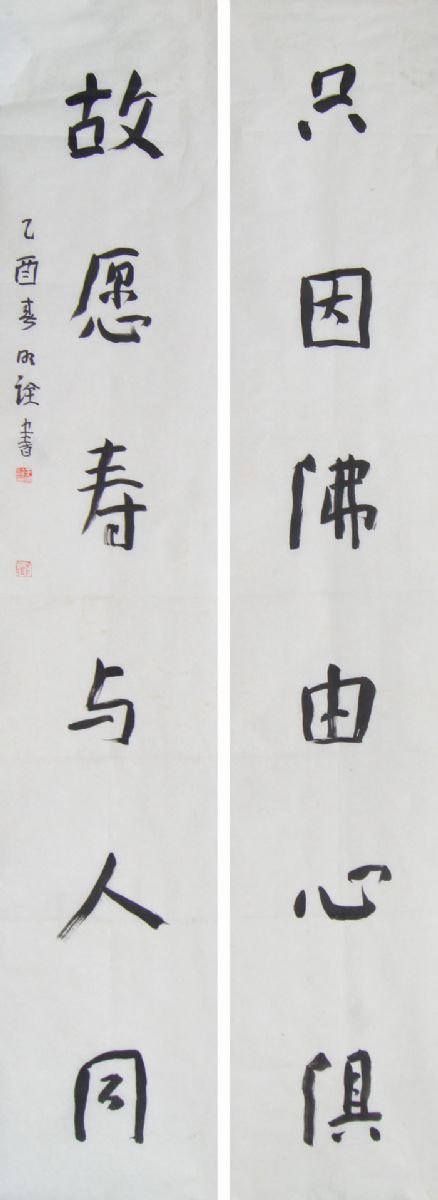 只因佛由心俱
故愿寿与人同
乙酉春明诠书